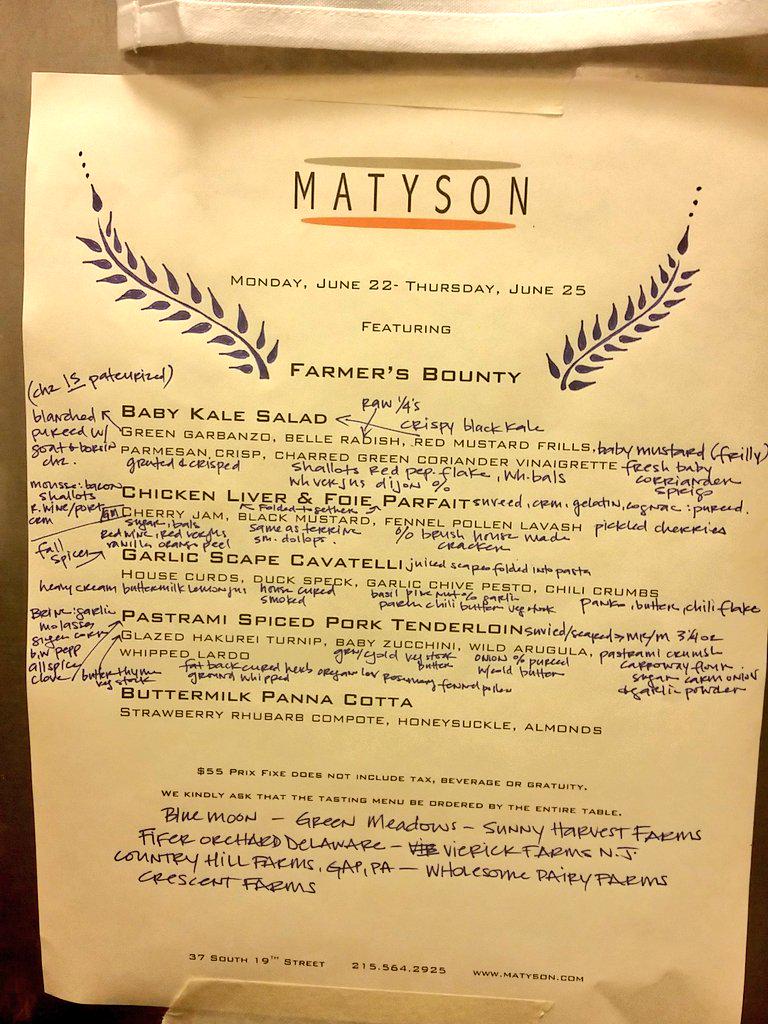 MATYSON
MONDAY, JUNE 22- THURSDAY, JUNE 25
FEATURING
FARMER'S BOUNTY
(chz IS pateurized)
raw 1/4's
BABY KALE SALAD
crispy black kale
blanched
pureed w/
GREEN GARBANZO, BELLE RADISH, RED MUSTARD FRILLS, baby mustard (frilly)
PARMESAN CRISP, CHARRED GREEN CORIANDER VINAIGRETTE fresh baby
chz.
grated & crisped
shallots red pep. flake, wh. bals
wh verjus dijon %
mousse: bacon
shallots
r. wine/port
crm
CHICKEN LIVER & FOIE PARFAIT
crm, gelatin, cognac: pureed.
folded together
CHERRY JAM, BLACK MUSTARD, FENNEL POLLEN LAVASH pickled cherries
sugar, bals
red wine, red verjus
vanilla orange peel
same as terrine
sm. dollops.
% brush house made
cracker
fall
spices
GARLIC SCAPE CAVATELLI juiced scapes folded into pasta
HOUSE CURDS, DUCK SPECK, GARLIC CHIVE PESTO, CHILI CRUMBS
heavy cream buttermilk lemon jus
house cured
smoked
basil pine nut % garlic
parm chili butter veg stock
panko, butter, chili flake
Brine: garlic
molasses
b.w pepp
allspice
clove
PASTRAMI SPICED PORK TENDERLOIN
GLAZED HAKUREI TURNIP, BABY ZUCCHINI, WILD ARUGULA, pastrami crumsh
WHIPPED LARDO
butter thyme
veg stock
grn/gold veg stock
butter
onion % pureed
w/cold butter
fat back cured herb
ground whipped
rosemary fennel pollen
carroway flour
sugar
onion
& garlic powder
BUTTERMILK PANNA COTTA
STRAWBERRY RHUBARB COMPOTE, HONEYSUCKLE, ALMONDS
$55 PRIX FIXE DOES NOT INCLUDE TAX, BEVERAGE OR GRATUITY.
WE KINDLY ASK THAT THE TASTING MENU BE ORDERED BY THE ENTIRE TABLE.
Blue moon — Green Meadows — Sunny Harvest Farms
Fifer Orchard Delaware — Vierick Farms N.J.
Country Hill Farms, Gap, PA — Wholesome Dairy Farms
Crescent Farms
37 SOUTH 19TH STREET 215.564.2925 WWW.MATYSON.COM